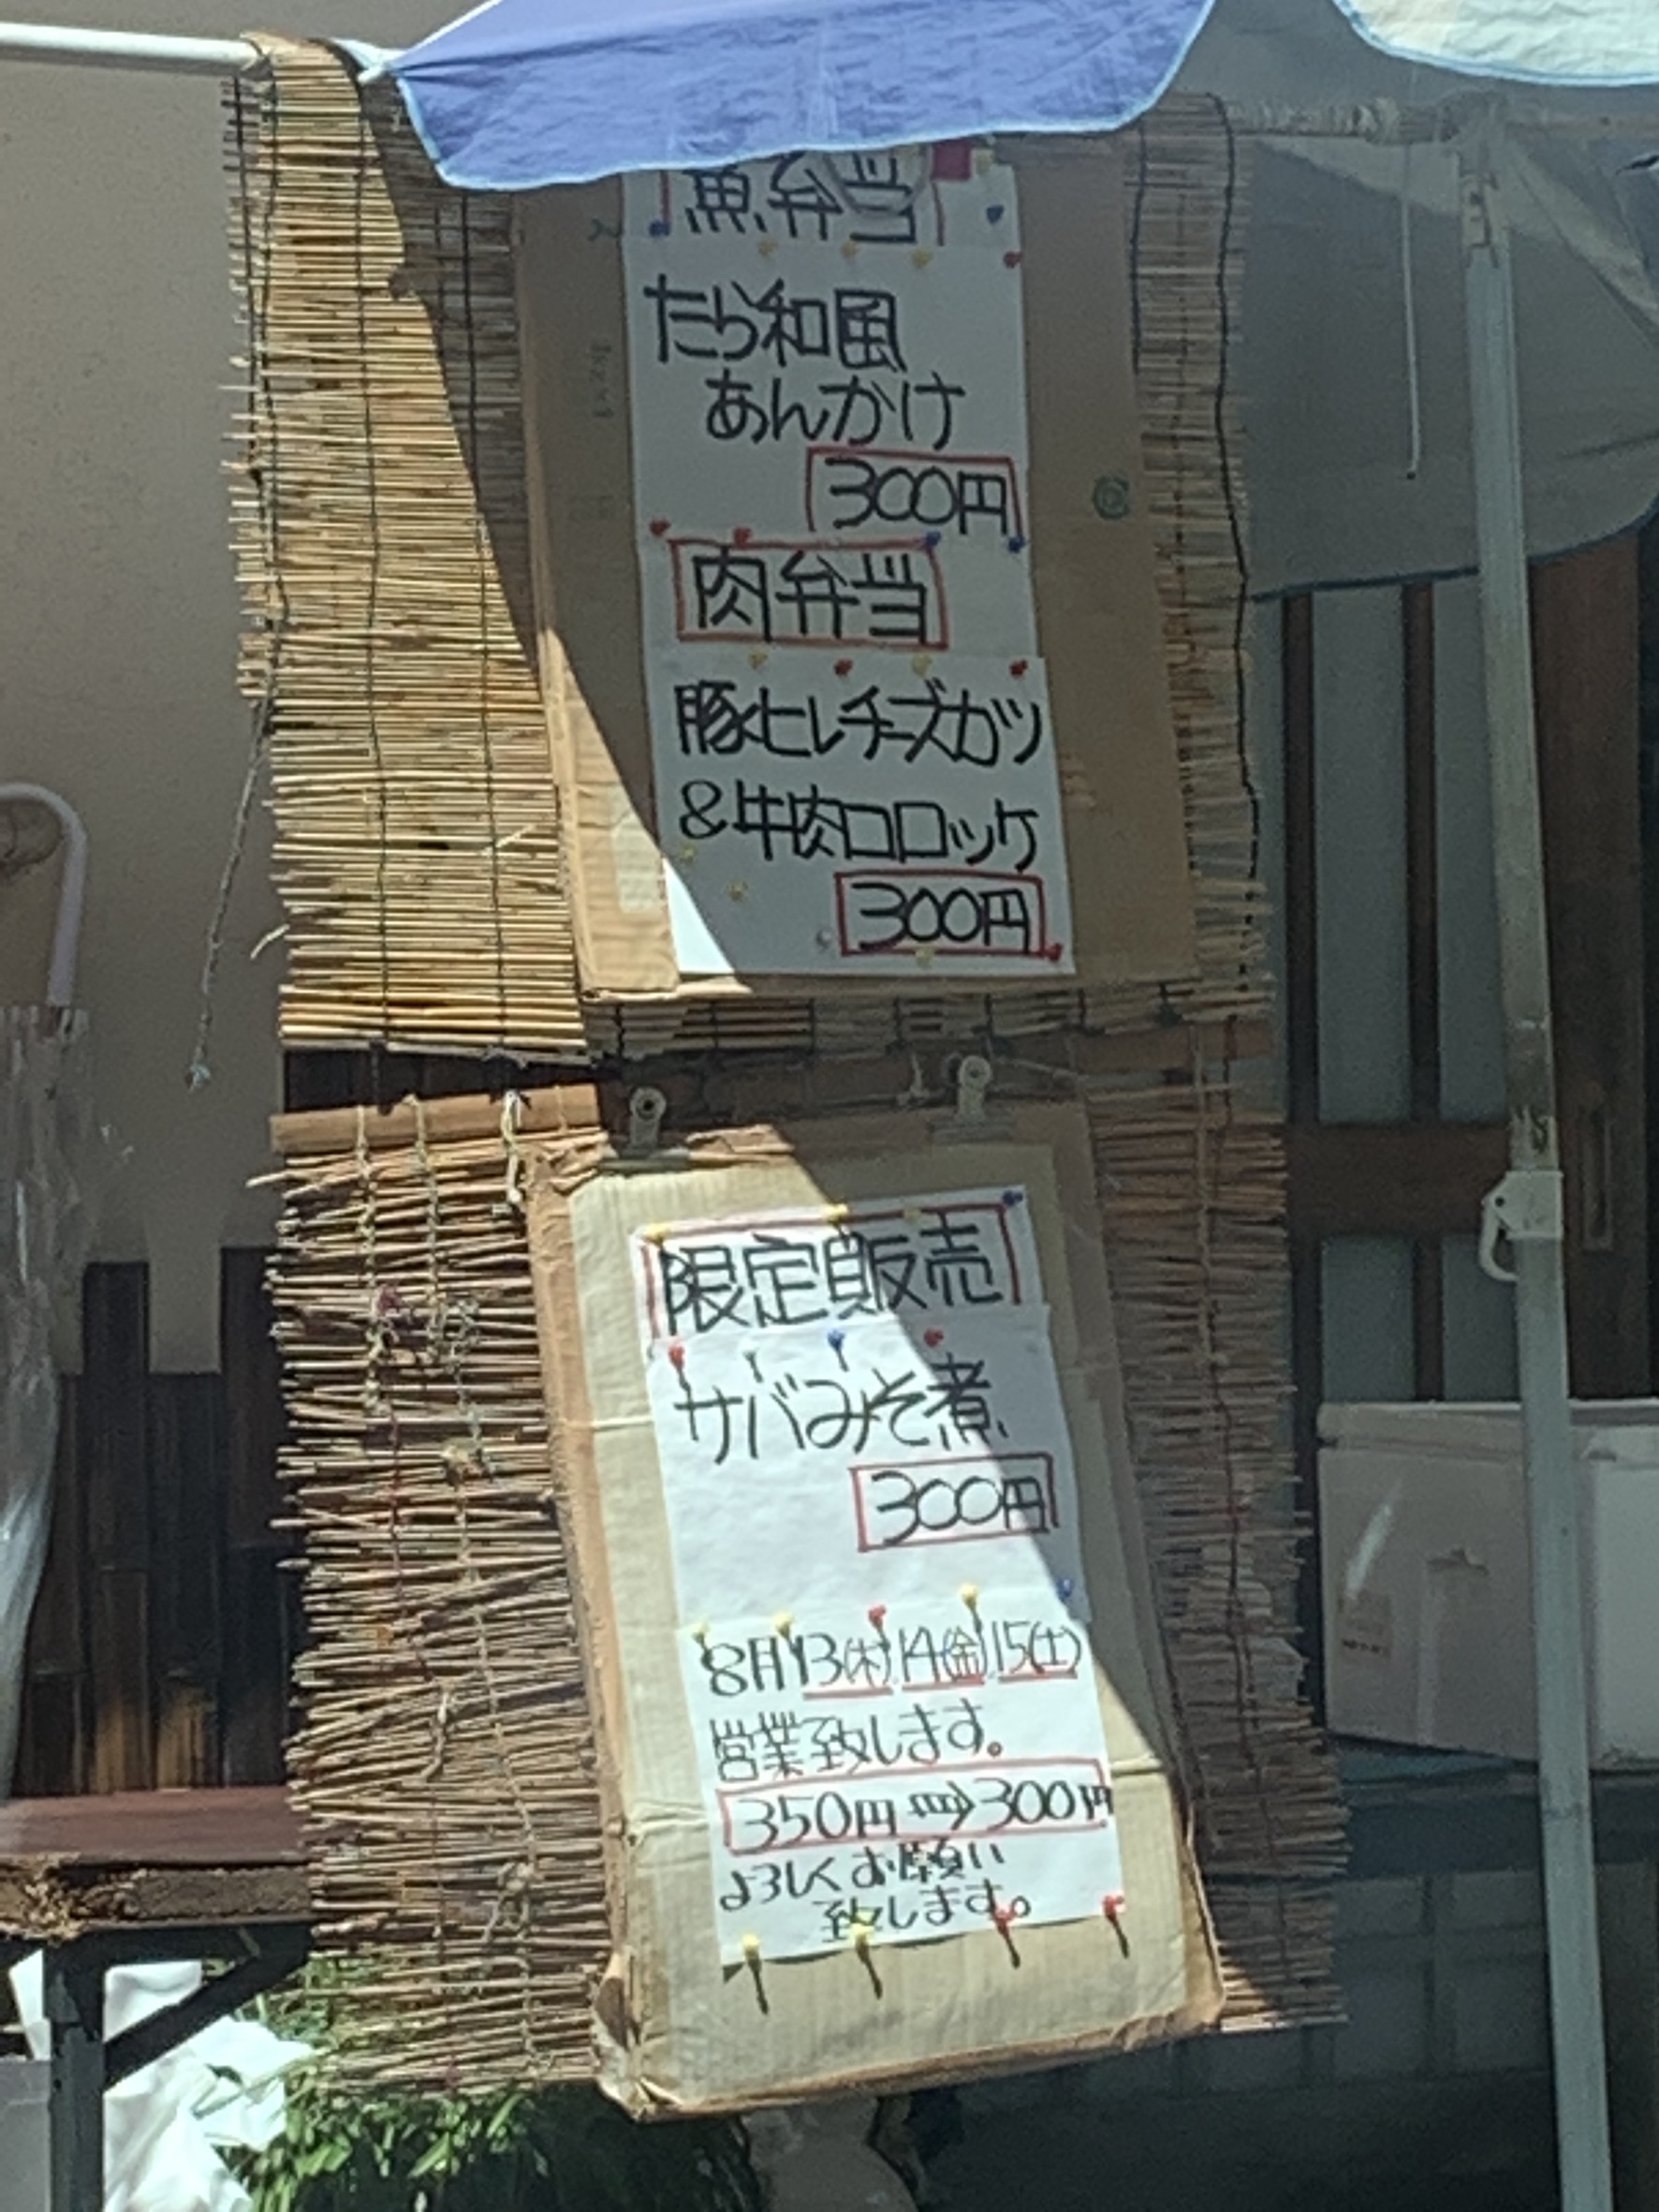 魚弁当
たら和風
あんかけ
300円
肉弁当
豚ヒレチーズカツ
&牛肉コロッケ
300円
限定販売
サバみそ煮
300円
8月13(木)14(金)15(土)
営業致します。
350円⇒300円
よろしくお願い
致します。